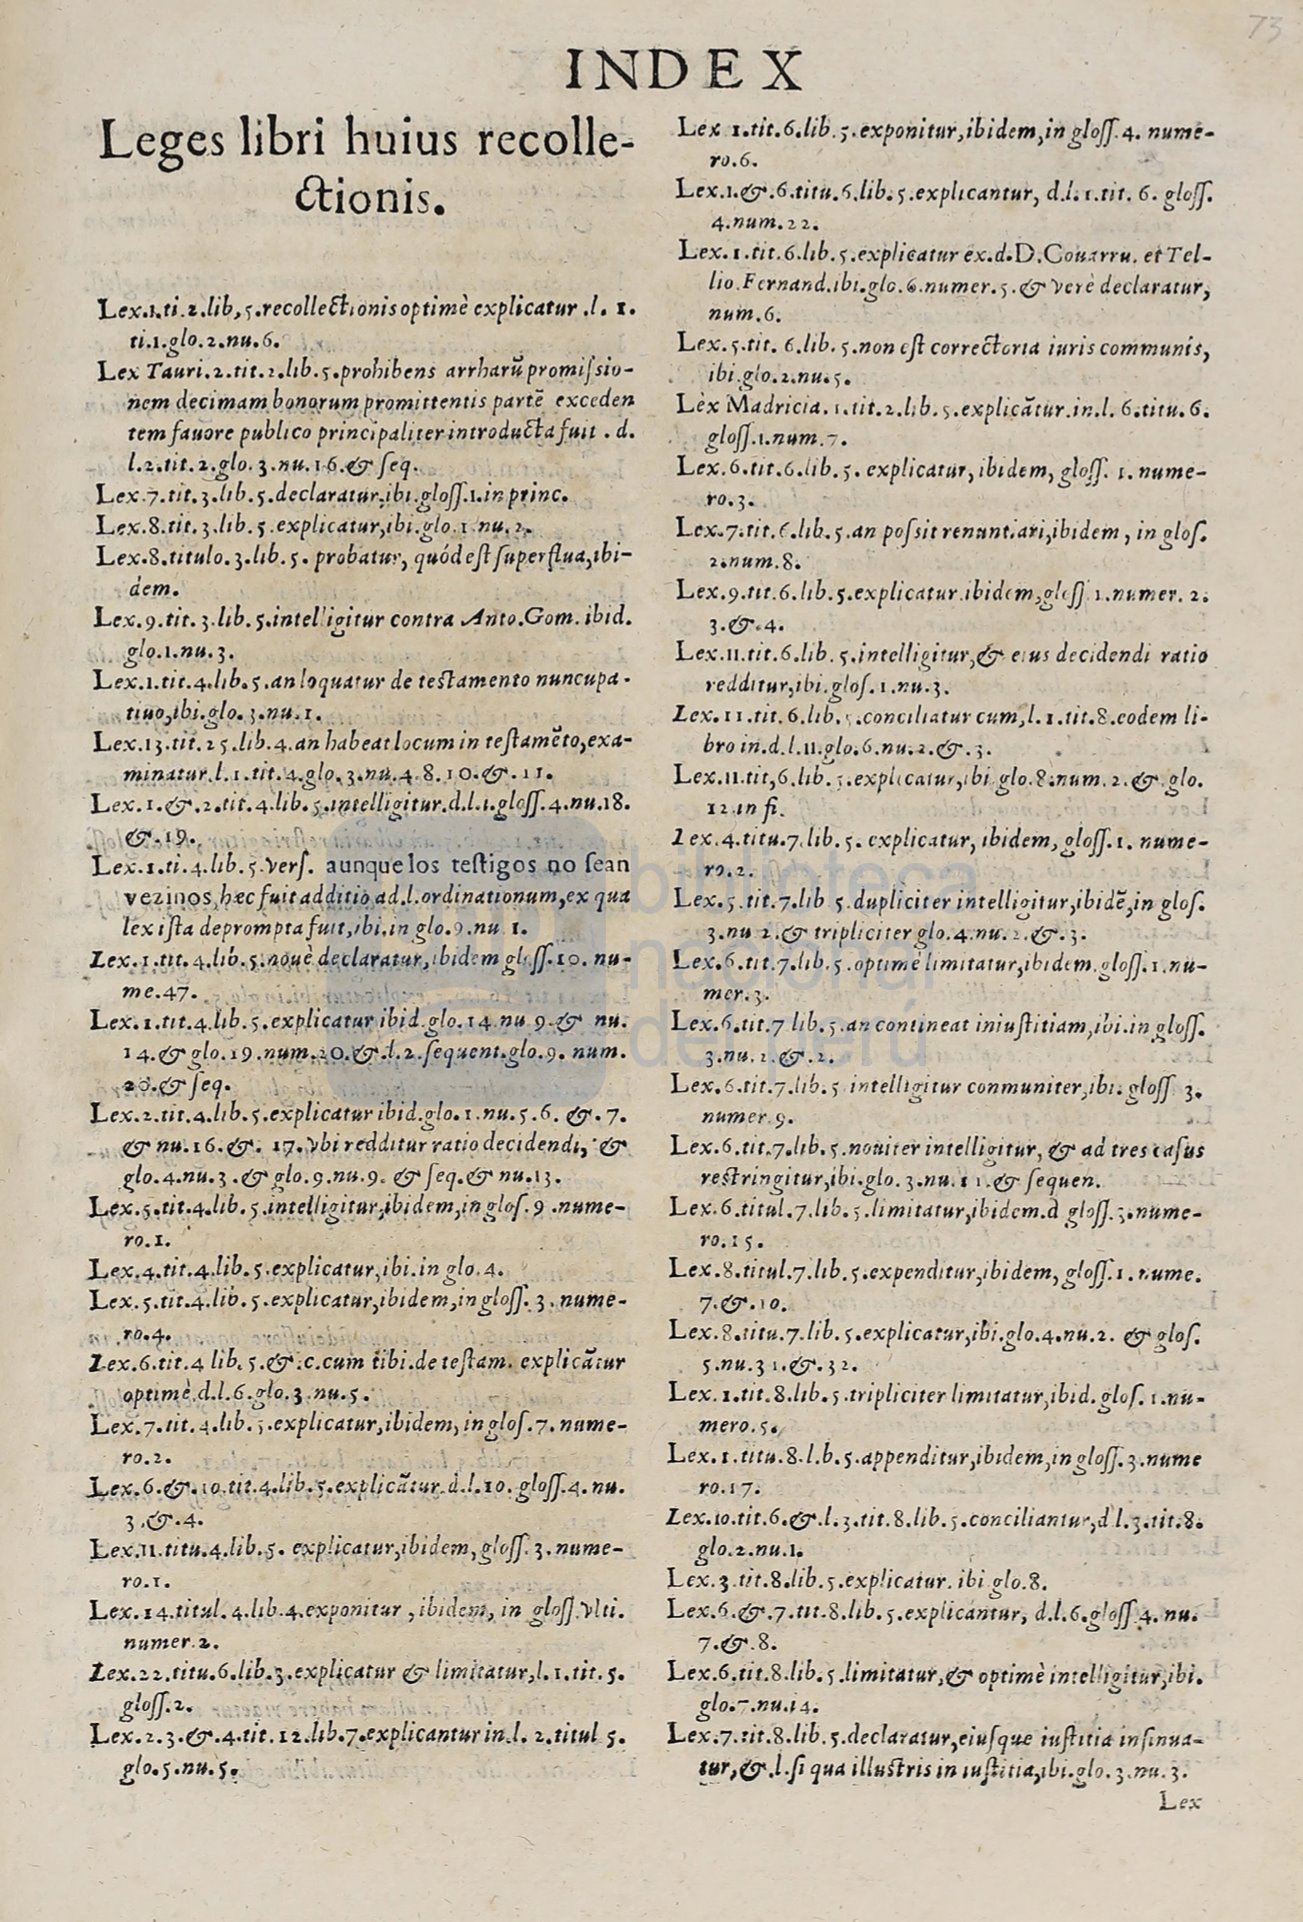 73
INDEX
Leges libri huius recolle-
ctionis.
Lex.1.ti.2.lib,5.recollectionis optimè explicatur .l. 1.
ti.1.glo.2.nu.6.
Lex Tauri.2.tit.2.lib.5.prohibens arrharũ promissio-
nem decimam bonorum promittentis partẽ exceden
tem fauore publico principaliter introducta fuit . d.
l.2.tit.2.glo.3.nu.16.& seq.
Lex.7.tit.3.lib.5.declaratur,ibi.gloss.1.in princ.
Lex.8.tit.3.lib.5.explicatur,ibi.glo.1.nu.2.
Lex.8.titulo.3.lib.5. probatur, quód est superflua,ibi-
dem.
Lex.9.tit.3.lib.5.intelligitur contra Anto.Gom. ibid.
glo.1.nu.3.
Lex.1.tit.4.lib.5.an loquatur de testamento nuncupa-
tiuo,ibi.glo.3.nu.1.
Lex.13.tit.25.lib.4.an habeat locum in testamẽto,exa-
minatur.l.1.tit.4.glo.3.nu.4.8.10.&.11.
Lex.1.&.2.tit.4.lib.5.intelligitur.d.l.1.gloss.4.nu.18.
&.19.
Lex.1.ti.4.lib.5.vers. aunque los testigos no sean
vezinos,hæc fuit additio ad.l.ordinationum,ex qua
lex ista deprompta fuit,ibi.in glo.9.nu.1.
Lex.1.tit.4.lib.5.nouè declaratur,ibidem gloss.10. nu-
me.47.
Lex.1.tit.4.lib.5.explicatur ibid.glo.14.nu.9.& nu.
14.& glo.19.num.20.&.l.2.sequent.glo.9. num.
20.& seq.
Lex.2.tit.4.lib.5.explicatur ibid.glo.1.nu.5.6. &.7.
& nu.16.&. 17.vbi redditur ratio decidendi, &
glo.4.nu.3.& glo.9.nu.9. & seq.& nu.13.
Lex.5.tit.4.lib.5.intelligitur,ibidem,in glos.9.nume-
ro.1.
Lex.4.tit.4.lib.5.explicatur,ibi.in glo.4.
Lex.5.tit.4.lib.5.explicatur,ibidem,in gloss.3.nume-
ro.4.
Lex.6.tit.4 lib.5.&.c.cum tibi.de testam. explicãtur
optimè.d.l.6.glo.3.nu.5.
Lex.7.tit.4.lib.5.explicatur,ibidem,in glos.7.nume-
ro.2.
Lex.6.&.10.tit.4.lib.5.explicãtur.d.l.10. gloss.4.nu.
3.&.4.
Lex.11.titu.4.lib.5. explicatur,ibidem,gloss.3.nume-
ro.1.
Lex.14.titul.4.lib.4.exponitur , ibidem, in gloss.vlti.
numer.2.
Lex.22.titu.6.lib.3.explicatur & limitatur,l.1.tit.5.
gloss.2.
Lex.2.3.&.4.tit.12.lib.7.explicantur in.l. 2.titul 5.
glo.5.nu.5.
Lex 1.tit.6.lib.5.exponitur,ibidem,in gloss.4. nume-
ro.6.
Lex.1.&.6.titu.6.lib.5.explicantur, d.l.1.tit. 6. gloss.
4.num.22.
Lex.1.tit.6.lib.5.explicatur ex.d.D.Couarru. et Tel-
lio Fernand.ibi.glo.6.numer.5.& verè declaratur,
num.6.
Lex.5.tit. 6.lib.5.non est correctoria iuris communis,
ibi.glo.2.nu.5.
Lèx Madricia.1.tit.2.lib.5.explicãtur.in.l. 6.titu.6.
gloss.1.num.7.
Lex.6.tit.6.lib.5. explicatur, ibidem, gloss. 1. nume-
ro.3.
Lex.7.tit.6.lib.5.an possit renuntiari,ibidem , in glos.
2.num.8.
Lex.9.tit.6.lib.5.explicatur.ibidem,gloss 1.numer. 2.
3.&.4.
Lex.11.tit.6.lib.5.intelligitur,& eius decidendi ratio
redditur,ibi.glos.1.nu.3.
Lex.11.tit.6.lib.5.conciliatur cum,l.1.tit.8.eodem li-
bro in.d.l.11.glo.6.nu.2.&.3.
Lex.11.tit,6.lib.5.explicatur,ibi glo.8.num.2.& glo.
12.in fi.
Lex.4.titu.7.lib.5. explicatur, ibidem, gloss.1. nume-
ro.2.
Lex.5.tit.7.lib 5.dupliciter intelligitur,ibidẽ,in glos.
3.nu 2.& tripliciter glo.4.nu.2.&.3.
Lex.6.tit.7.lib.5.optimè limitatur,ibidem.gloss.1.nu-
mer.3.
Lex.6.tit.7 lib.5.an contineat iniustitiam,ibi.in gloss.
3.nu.1.&.2.
Lex.6.tit.7.lib.5 intelligitur conmuniter,ibi. gloss 3.
numer.9.
Lex.6.tit.7.lib.5.nouiter intelligitur, & ad tres casus
restringitur,ibi.glo.3.nu.11.& sequen.
Lex.6.titul.7.lib.5.limitatur,ibidem.d gloss.3.nume-
ro.15.
Lex.8.titul.7.lib.5.expenditur,ibidem, gloss.1.nume.
7.&.10.
Lex.8.titu.7.lib.5.explicatur,ibi.glo.4.nu.2. & glos.
5.nu.31.&.32.
Lex.1.tit.8.lib.5.tripliciter limitatur,ibid.glos.1.nu-
mero.5.
Lex.1.titu.8.l.b.5.appenditur,ibidem,in gloss.3.nume
ro.17.
Lex.10.tit.6.&.l.3.tit.8.lib.5.conciliantur,d l.3.tit.8.
glo.2.nu.1.
Lex.3.tit.8.lib.5.explicatur. ibi glo.8.
Lex.6.&.7.tit.8.lib.5.explicantur, d.l.6.gloss 4. nu.
7.&.8.
Lex.6.tit.8.lib.5.limitatur,& optimè intelligitur,ibi.
glo.7.nu.14.
Lex.7.tit.8.lib.5.declaratur,eiusque iustitia insinua-
tur,&.l.si qua illustris in iustitia,ibi.glo.3.nu.3.
Lex
biblioteca
nacional
del perú